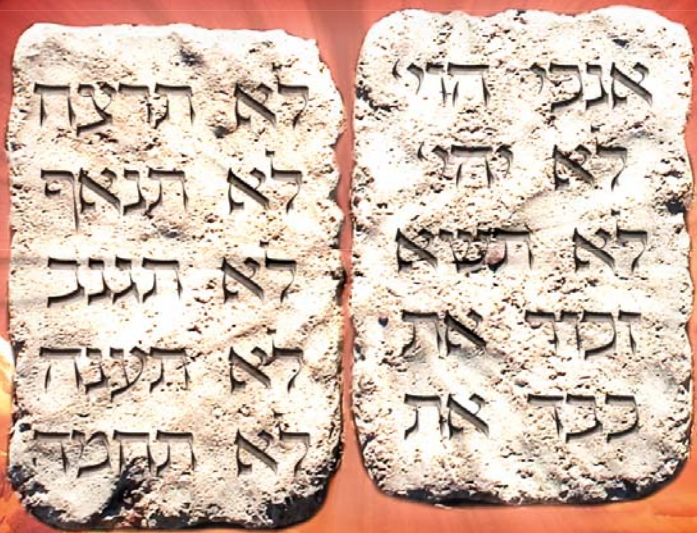 אנכי הוי'
לא יהי'
לא תשיא
זכור את
כבד את
לא תרצח
לא תנאף
לא תגנב
לא תענה
לא תחמד